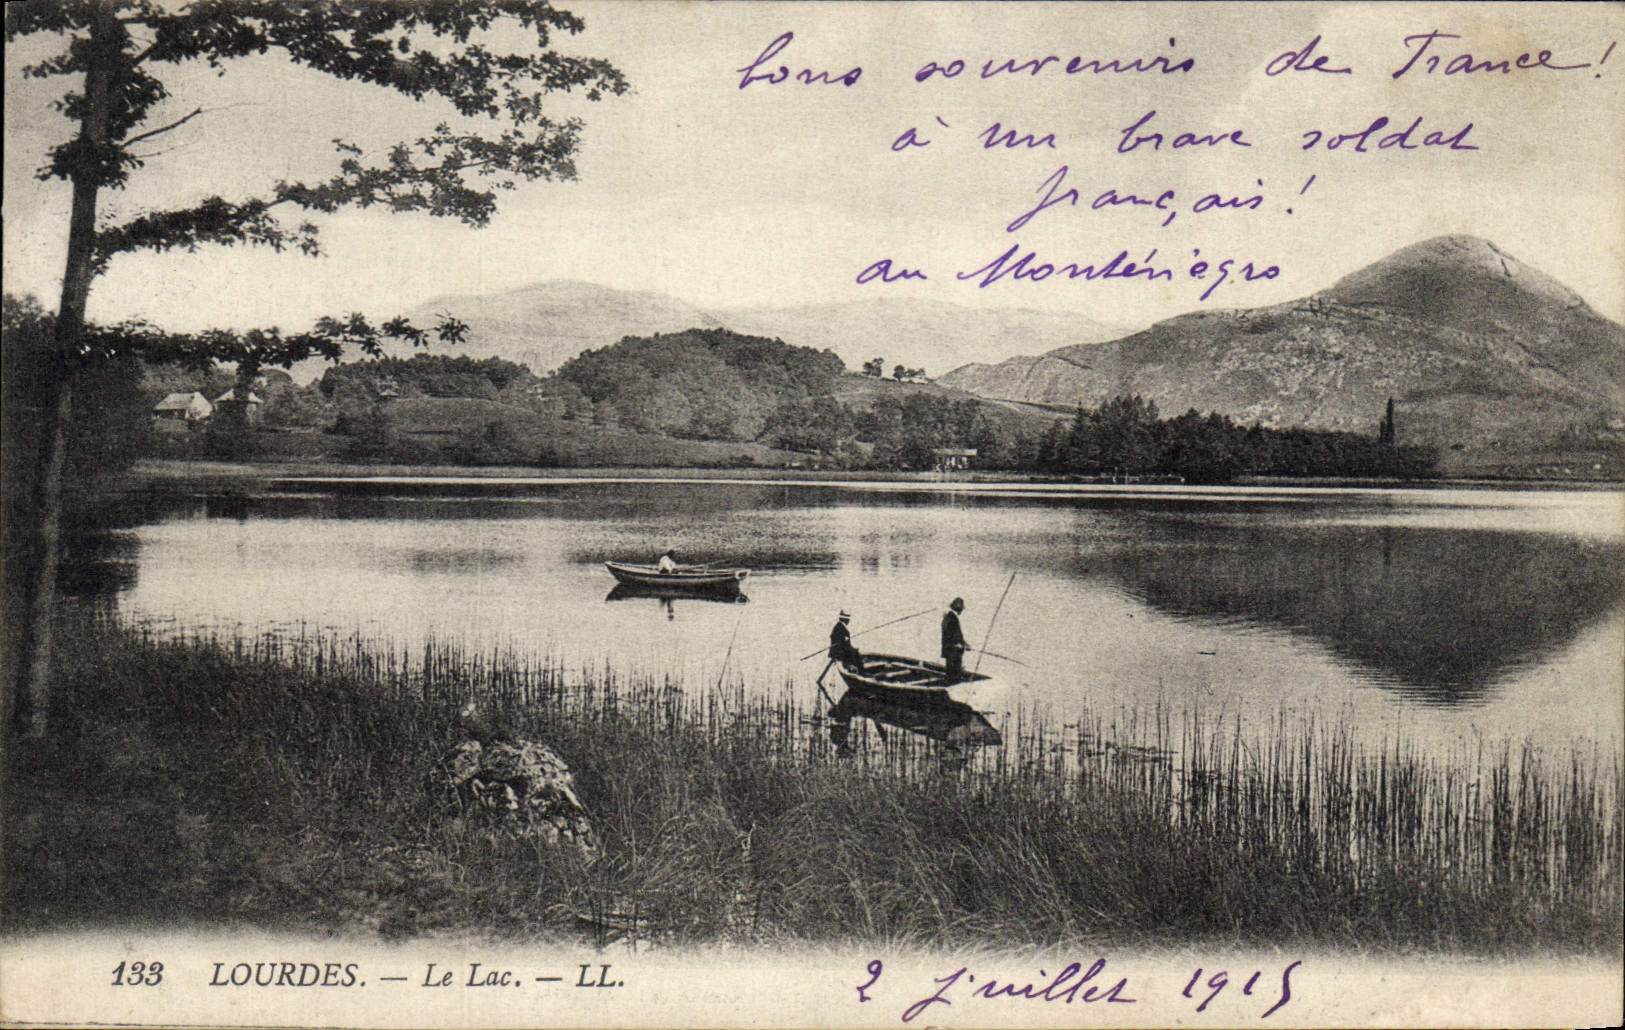 bons souvenirs de France!
à un brave soldat
français!
au Monténégro
133 LOURDES. — Le Lac. — LL.
2 juillet 1915